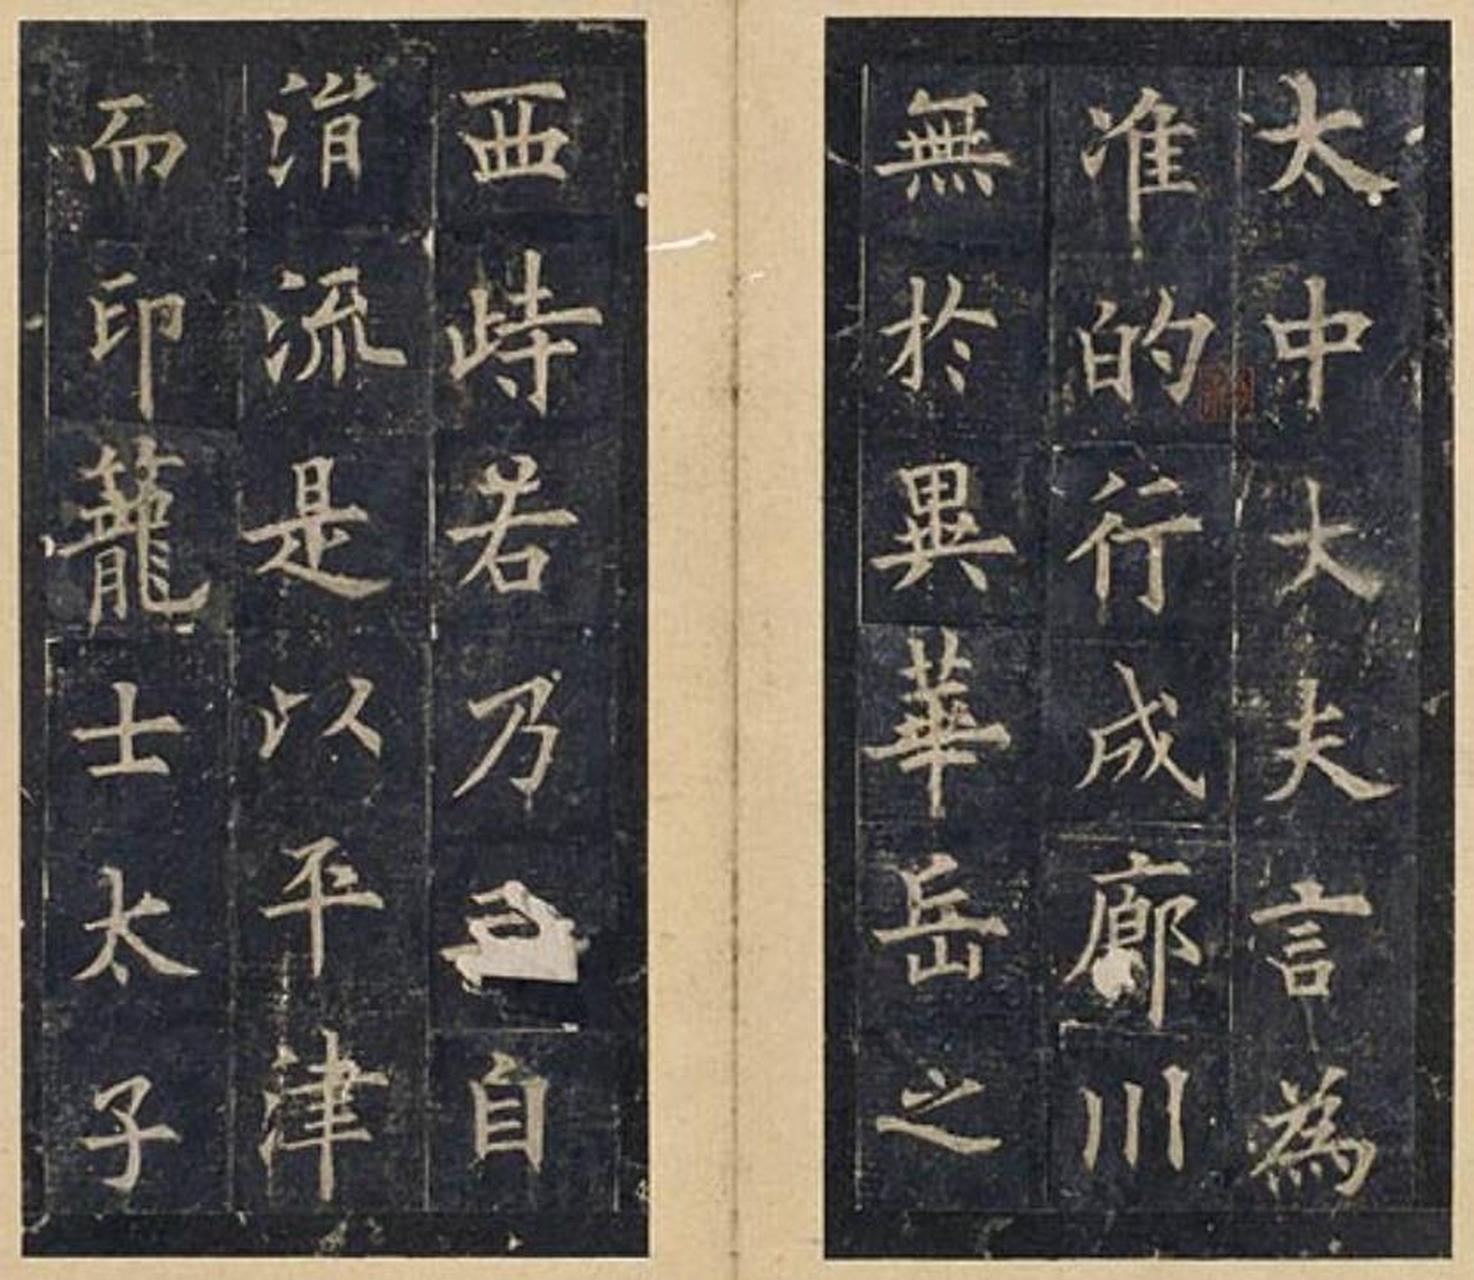 太中大夫言為
准的行成廊川
無於異華岳之
西峙若乃自
涓流是以平津
而印籠士太子